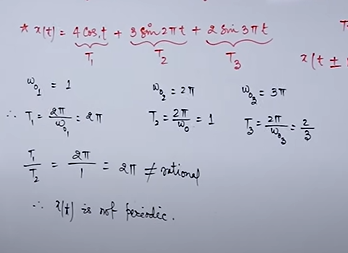 * x(t) = 4 cos t + 3 sin 2πt + 2 sin 3πt
T₁ T₂ T₃
x(t ±
ω₀₁ = 1 ω₀₂ = 2π ω₀₃ = 3π
∴ T₁ = 2π/ω₀₁ = 2π T₂ = 2π/ω₀ = 1 T₃ = 2π/ω₀₃ = 2/3
T₁/T₂ = 2π/1 = 2π ≠ rational
∴ x(t) is not periodic.